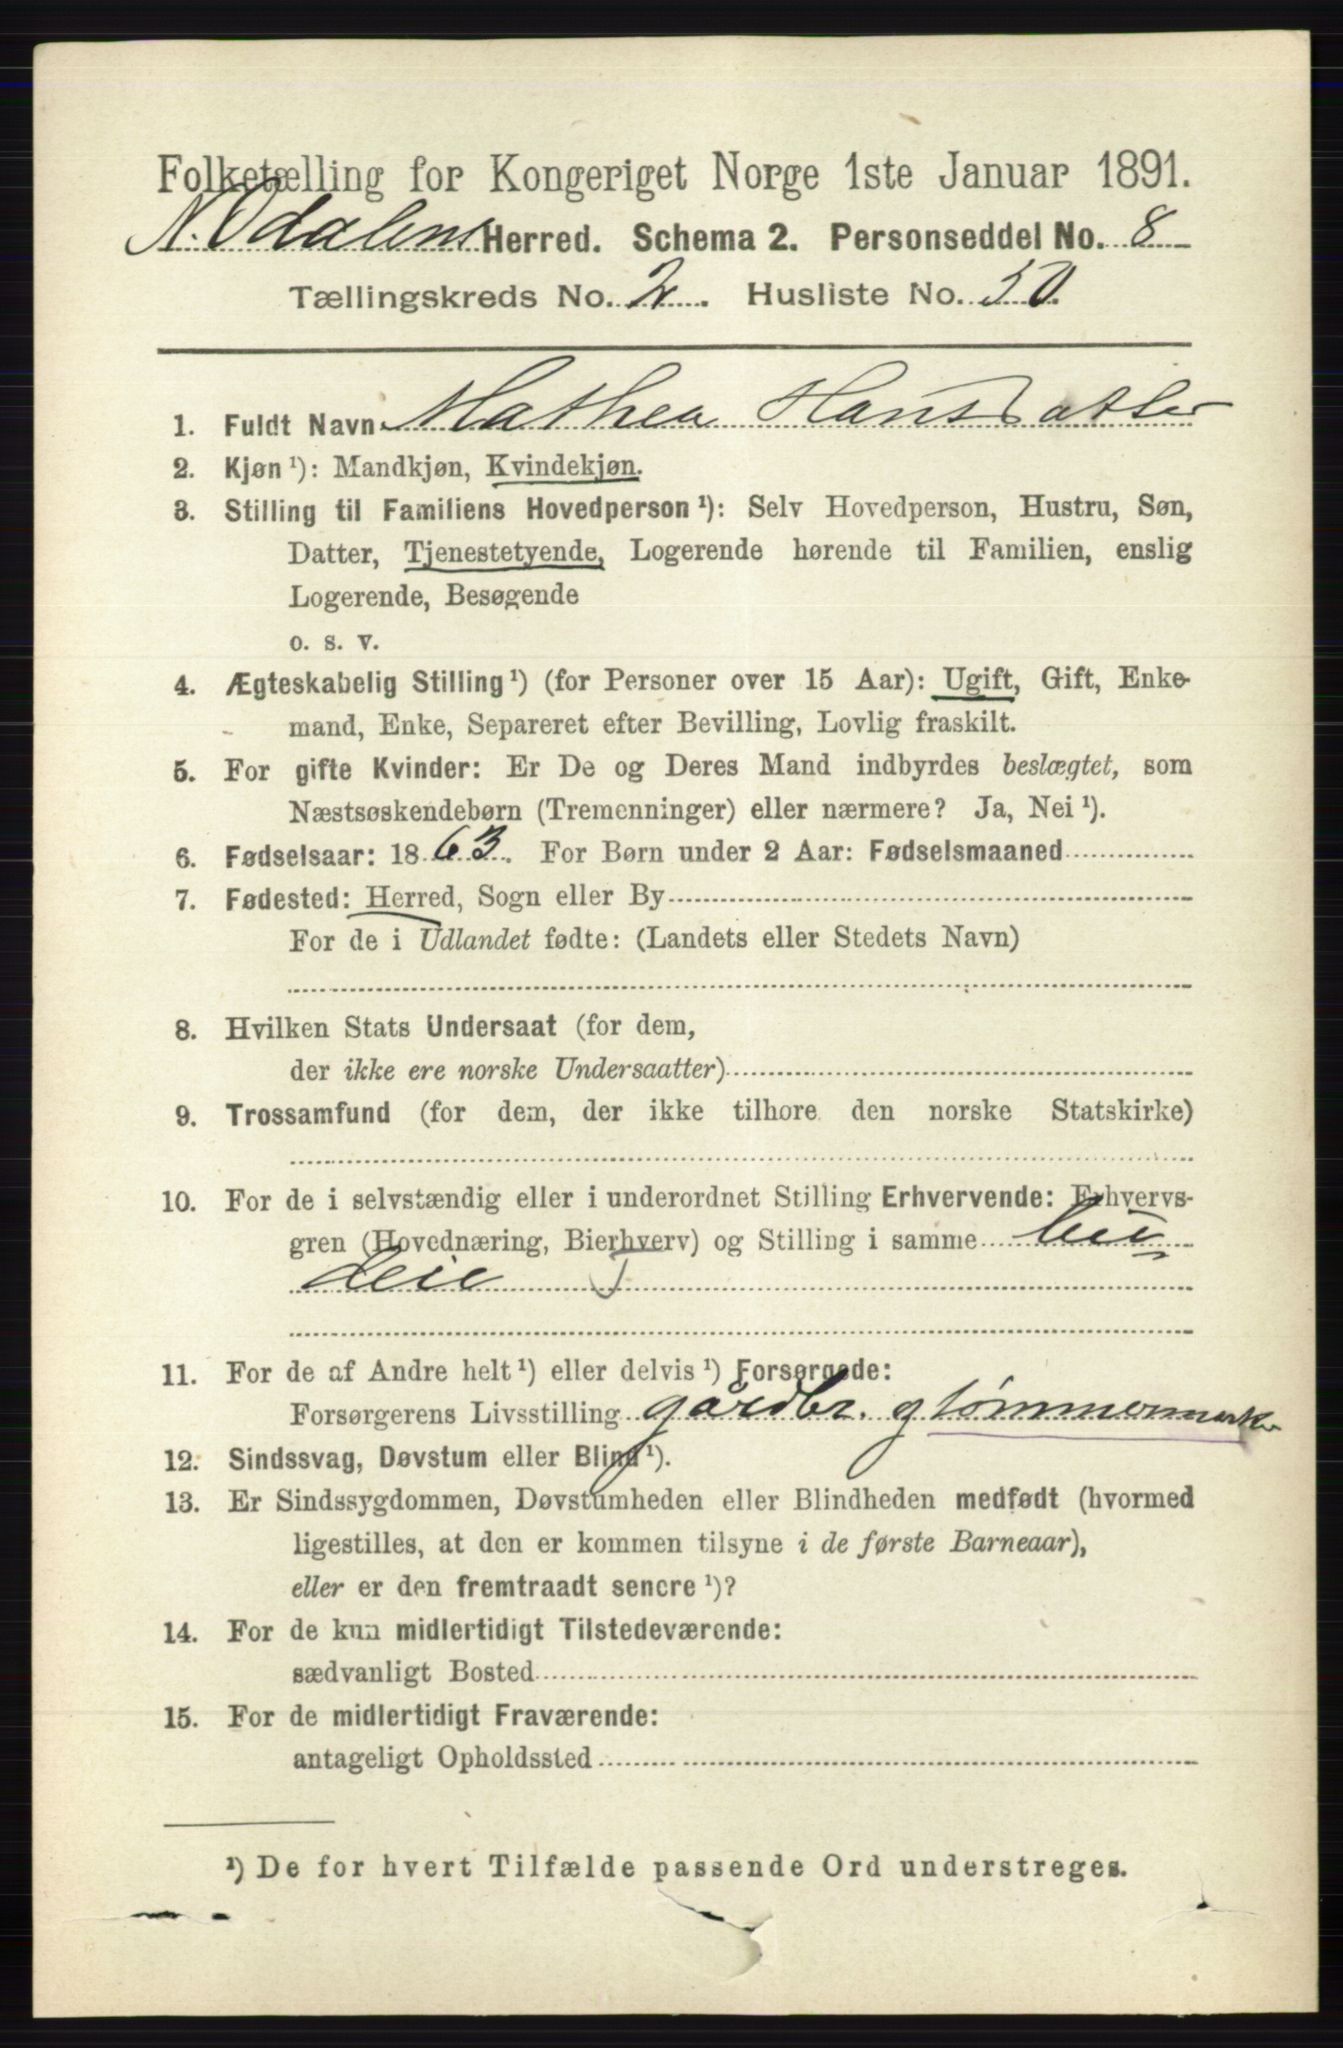 Folketælling for Kongeriget Norge 1ste Januar 1891.
N. Odalens Herred. Schema 2. Personseddel No. 8
Tællingskreds No. 2. Husliste No. 50.
1. Fuldt Navn Mathea Hansdatter
2. Kjøn ¹): Mandkjøn, Kvindekjøn.
3. Stilling til Familiens Hovedperson ¹): Selv Hovedperson, Hustru, Søn,
Datter, Tjenestetyende, Logerende hørende til Familien, enslig
Logerende, Besøgende
o. s. v.
4. Ægteskabelig Stilling ¹) (for Personer over 15 Aar): Ugift, Gift, Enke-
mand, Enke, Separeret efter Bevilling, Lovlig fraskilt.
5. For gifte Kvinder: Er De og Deres Mand indbyrdes beslægtet, som
Næstsøskendebørn (Tremenninger) eller nærmere? Ja, Nei ¹).
6. Fødselsaar: 1863. For Børn under 2 Aar: Fødselsmaaned
7. Fødested: Herred, Sogn eller By
For de i Udlandet fødte: (Landets eller Stedets Navn)
8. Hvilken Stats Undersaat (for dem,
der ikke ere norske Undersaatter)
9. Trossamfund (for dem, der ikke tilhøre den norske Statskirke)
10. For de i selvstændig eller i underordnet Stilling Erhvervende: Erhvervs-
gren (Hovednæring, Bierhverv) og Stilling i samme
deie
11. For de af Andre helt ¹) eller delvis ¹) Forsørgede:
Forsørgerens Livsstilling gårdbr. g tømmermerker
12. Sindssvag, Døvstum eller Blind ¹).
13. Er Sindssygdommen, Døvstumheden eller Blindheden medfødt (hvormed
ligestilles, at den er kommen tilsyne i de første Barneaar),
eller er den fremtraadt senere ¹)?
14. For de kun midlertidigt Tilstedeværende:
sædvanligt Bosted
15. For de midlertidigt Fraværende:
antageligt Opholdssted
¹) De for hvert Tilfælde passende Ord understreges.